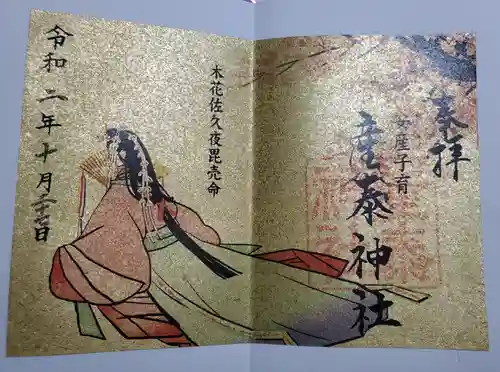 奉拝
安産子育
産泰神社
木花佐久夜毘売命
令和二年十月二十七日